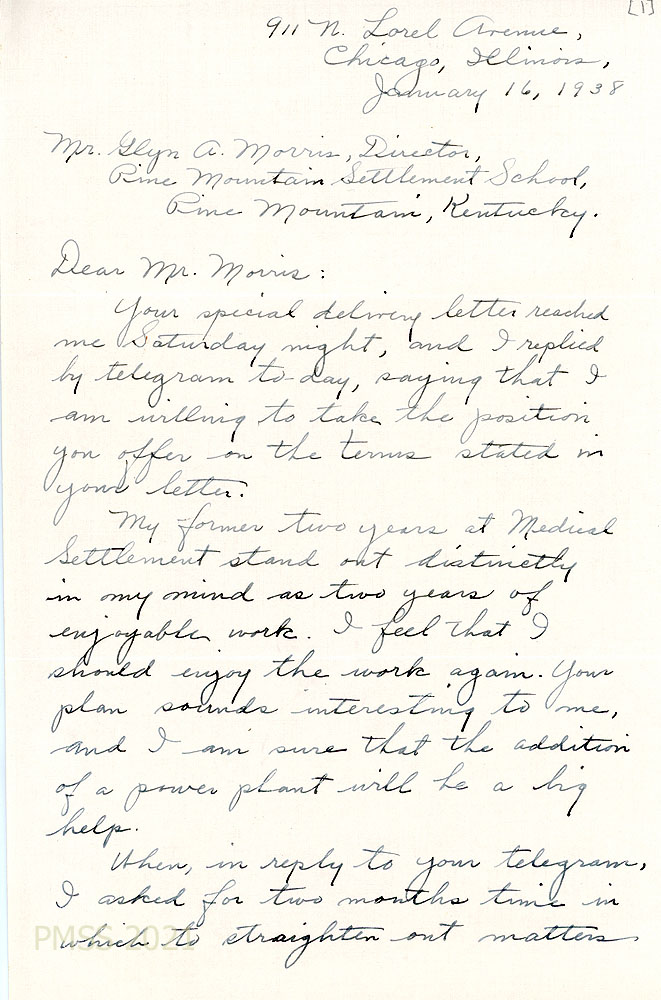 [1]
911 N. Lorel Avenue,
Chicago, Illinois,
January 16, 1938
Mr. Glyn A. Morris, Director,
Pine Mountain Settlement School,
Pine Mountain, Kentucky.
Dear Mr. Morris:
Your special delivery letter reached
me Saturday night, and I replied
by telegram to-day, saying that I
am willing to take the position
you offer on the terms stated in
your letter.
My former two years at Medical
Settlement stand out distinctly
in my mind as two years of
enjoyable work. I feel that I
should enjoy the work again. Your
plan sounds interesting to me,
and I am sure that the addition
of a power plant will be a big
help.
When, in reply to your telegram,
I asked for two months time in
which to straighten out matters
PMSS 2021